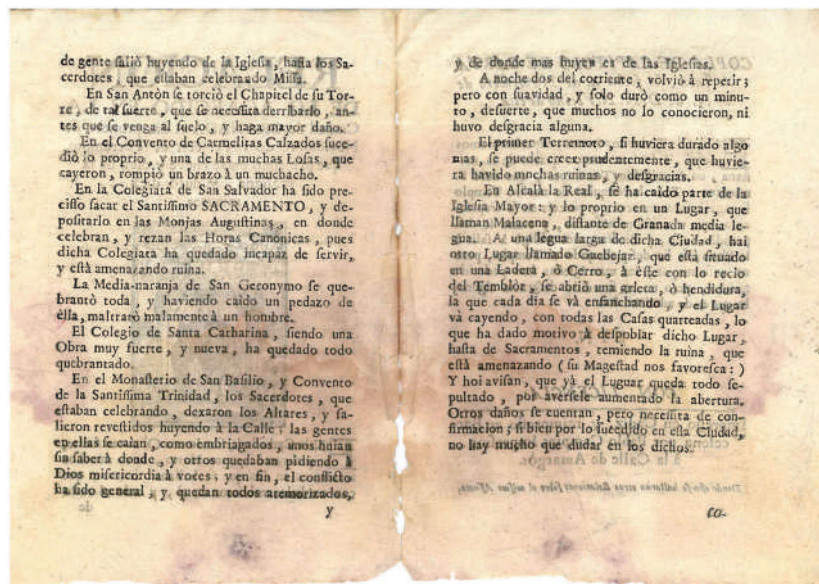 de gente saliò huyendo de la Iglesia, hasta los Sa-
cerdotes, que estaban celebrando Missa.
En San Antòn se torciò el Chapitel de su Tor-
re, de tal suerte, que se necessita derribarlo, an-
tes que se venga al suelo, y haga mayor daño.
En el Convento de Carmelitas Calzados suce-
diò lo proprio, y una de las muchas Losas, que
cayeron, rompiò un brazo à un muchacho.
En la Colegiata de San Salvador ha sido pre-
cisso sacar el Santissimo SACRAMENTO, y de-
positarlo en las Monjas Augustinas, en donde
celebran, y rezan las Horas Canonicas, pues
dicha Colegiata ha quedado incapàz de servir,
y està amenazando ruina.
La Media-naranja de San Geronymo se que-
brantò toda, y haviendo caìdo un pedazo de
èlla, maltratò malamente à un hombre.
El Colegio de Santa Catharina, siendo una
Obra muy fuerte, y nueva, ha quedado todo
quebrantado.
En el Monasterio de San Basilio, y Convento
de la Santissima Trinidad, los Sacerdotes, que
estaban celebrando, dexaron los Altares, y sa-
lieron revestidos huyendo à la Calle: las gentes
en ellas se caìan, como embriagados, unos huìan
sin saber à donde, y otros quedaban pidiendo à
Dios misericordia à voces; y en fin, el conflicto
ha sido general, y quedan todos atemorizados,
y
y de donde mas huyen es de las Iglesias.
A noche dos del corriente, volviò à repetir;
pero con suavidad, y solo durò como un minu-
to, desuerte, que muchos no lo conocieron, ni
huvo desgracia alguna.
El primer Terremoto, si huviera durado algo
mas, se puede creer prudentemente, que huvie-
ra havido muchas ruinas, y desgracias.
En Alcalà la Real, se ha caìdo parte de la
Iglesia Mayor: y lo proprio en un Lugar, que
llaman Malacena, distante de Granada media le-
gua. A una legua larga de dicha Ciudad, hai
otro Lugar llamado Guebejar, que està situado
en una Ladera, ò Cerro, à èste con lo recio
del Temblòr, se abriò una grieta, ò hendidura,
la que cada dia se và ensanchando, y el Lugar
và cayendo, con todas las Casas quarteadas, lo
que ha dado motivo à despoblar dicho Lugar,
hasta de Sacramentos, temiendo la ruina, que
està amenazando (su Magestad nos favoresca:)
Y hoi avisan, que yà el Luguar queda todo se-
pultado, por aversele aumentado la abertura.
Otros daños se cuentan, pero necessita de con-
firmacion; si bien por lo sucedido en esta Ciudad,
no hay mucho que dudar en los dichos.
CO-